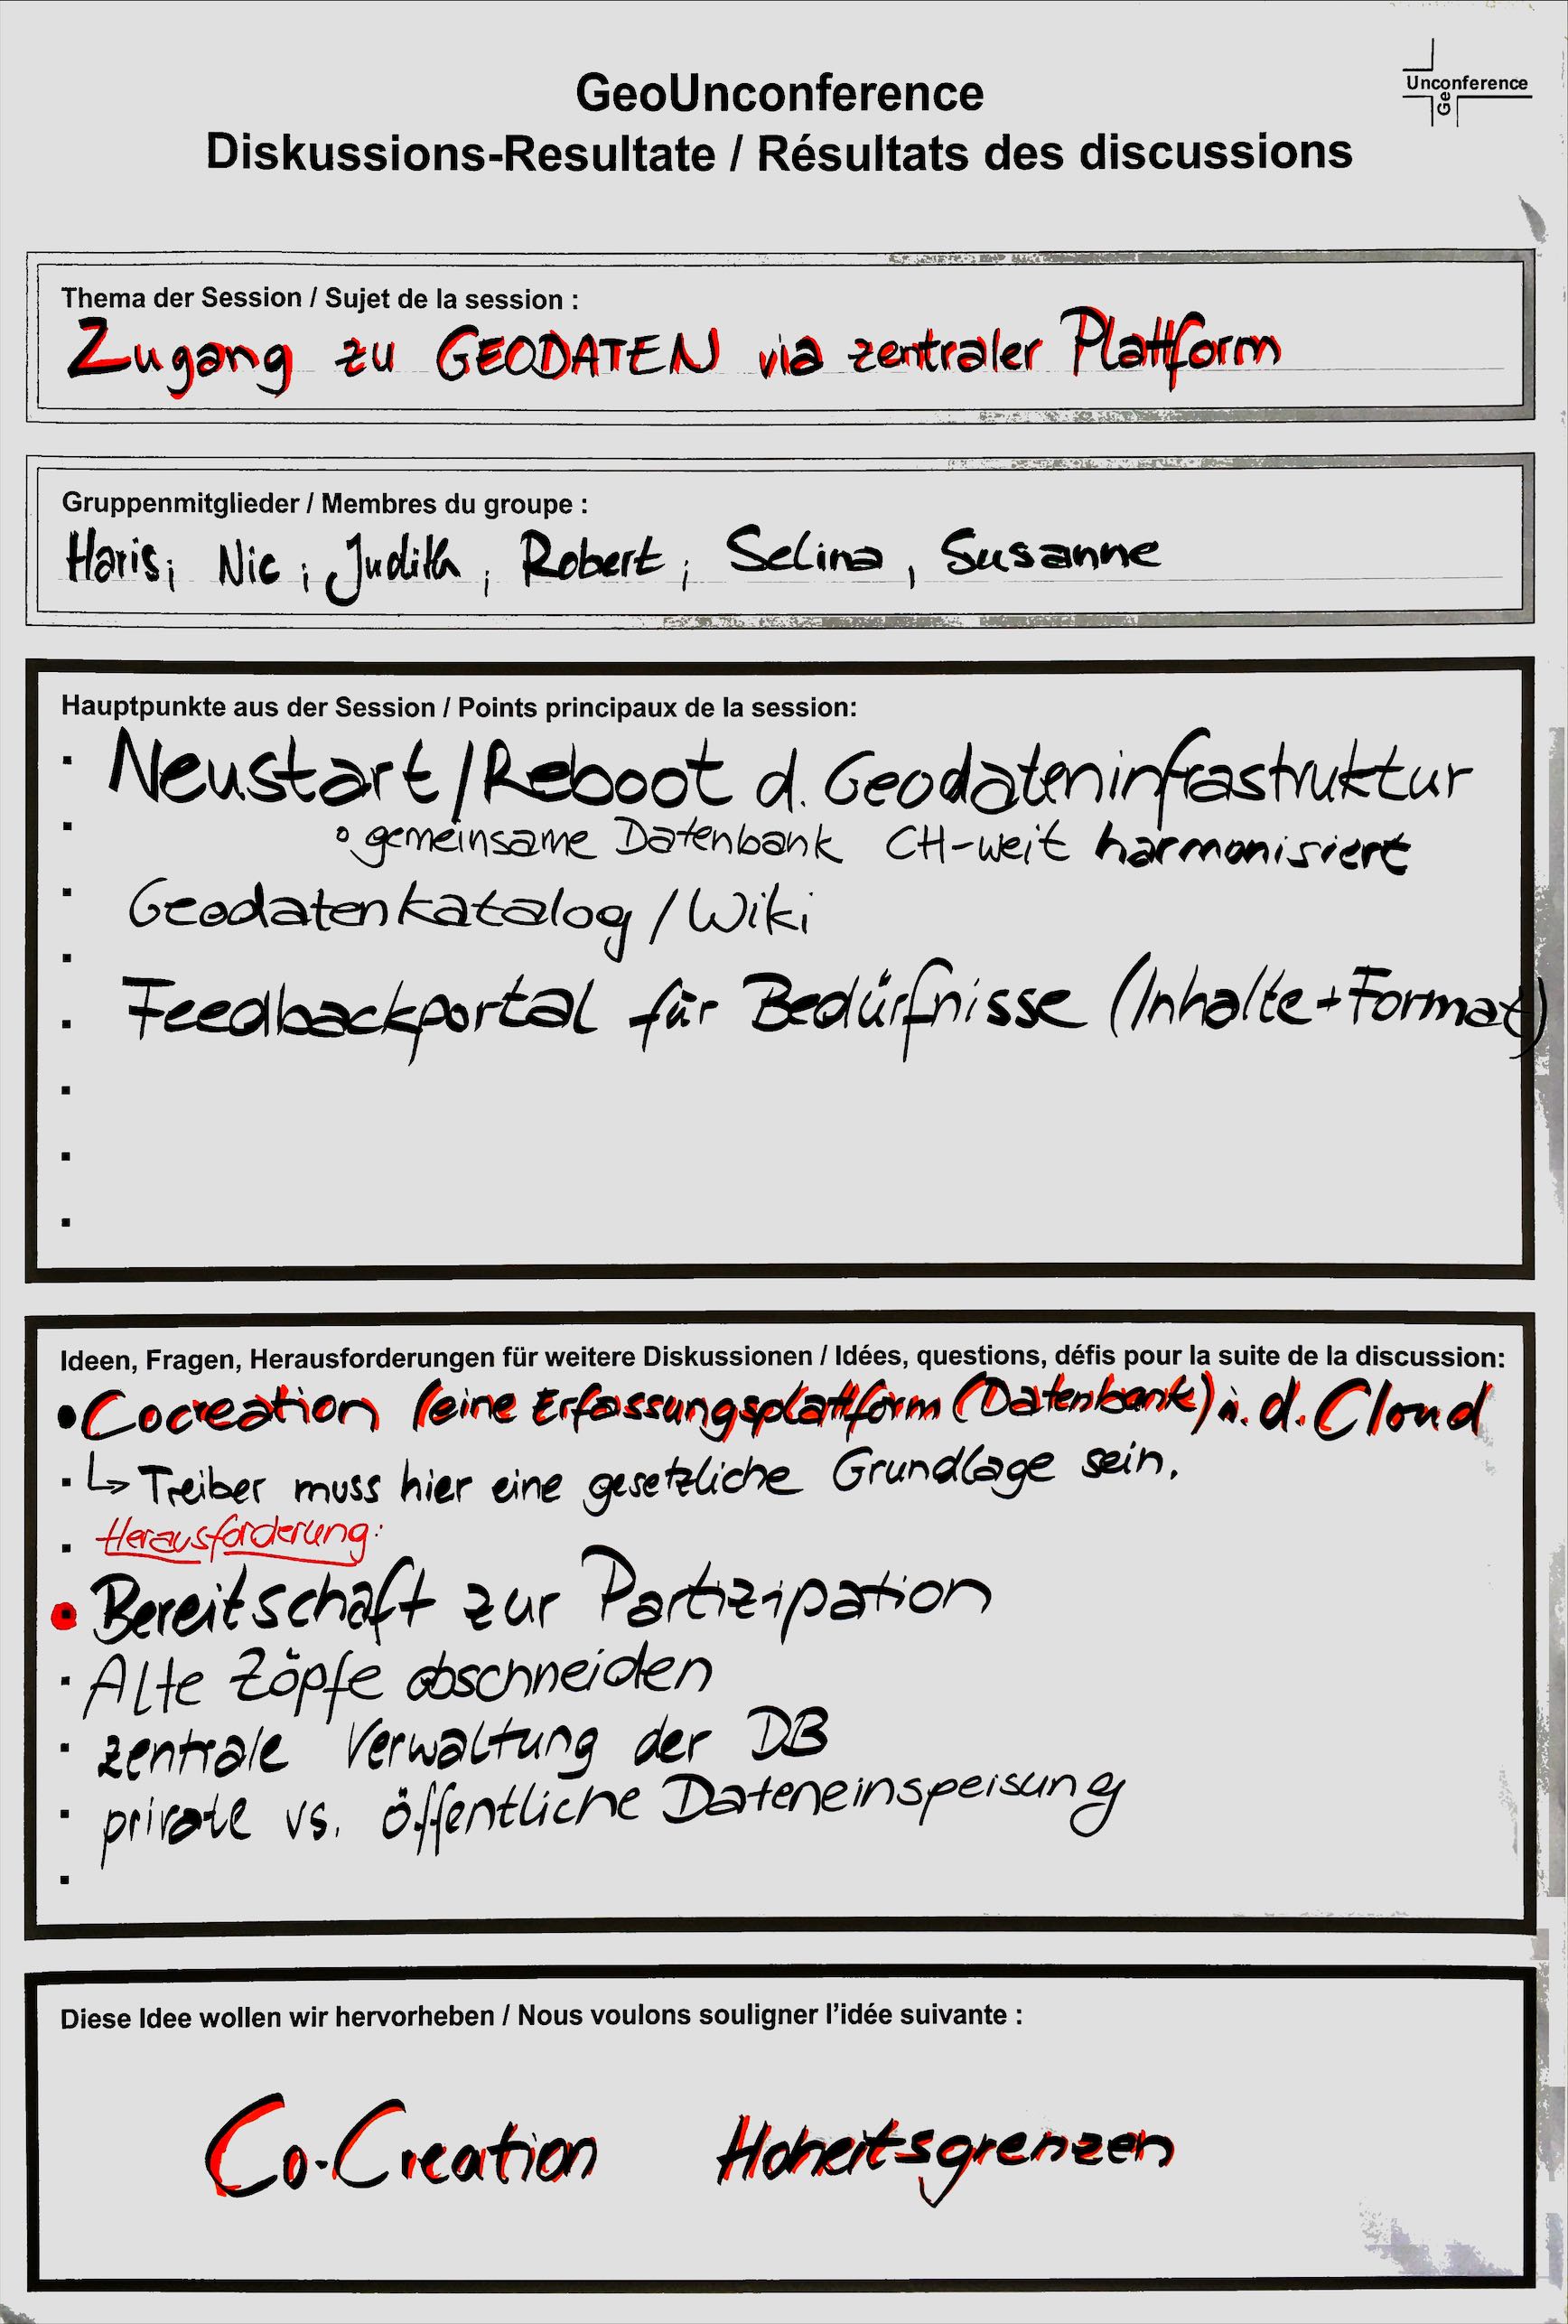 GeoUnconference
Diskussions-Resultate / Résultats des discussions
Unconference
Ge
Thema der Session / Sujet de la session :
Zugang zu GEODATEN via zentraler Plattform
Gruppenmitglieder / Membres du groupe :
Haris; Nic; Judith; Robert; Selina, Susanne
Hauptpunkte aus der Session / Points principaux de la session:
Neustart/Reboot d. Geodateninfrastruktur
° gemeinsame Datenbank CH-weit harmonisiert
Geodatenkatalog/Wiki
Feedbackportal für Bedürfnisse (Inhalte+Format)
Ideen, Fragen, Herausforderungen für weitere Diskussionen / Idées, questions, défis pour la suite de la discussion:
• Cocreation (eine Erfassungsplattform (Datenbank) i. d. Cloud
↳ Treiber muss hier eine gesetzliche Grundlage sein.
Herausforderung:
• Bereitschaft zur Partizipation
· Alte Zöpfe abschneiden
· zentrale Verwaltung der DB
· private vs. öffentliche Dateneinspeisung
Diese Idee wollen wir hervorheben / Nous voulons souligner l'idée suivante :
Co-Creation Hoheitsgrenzen